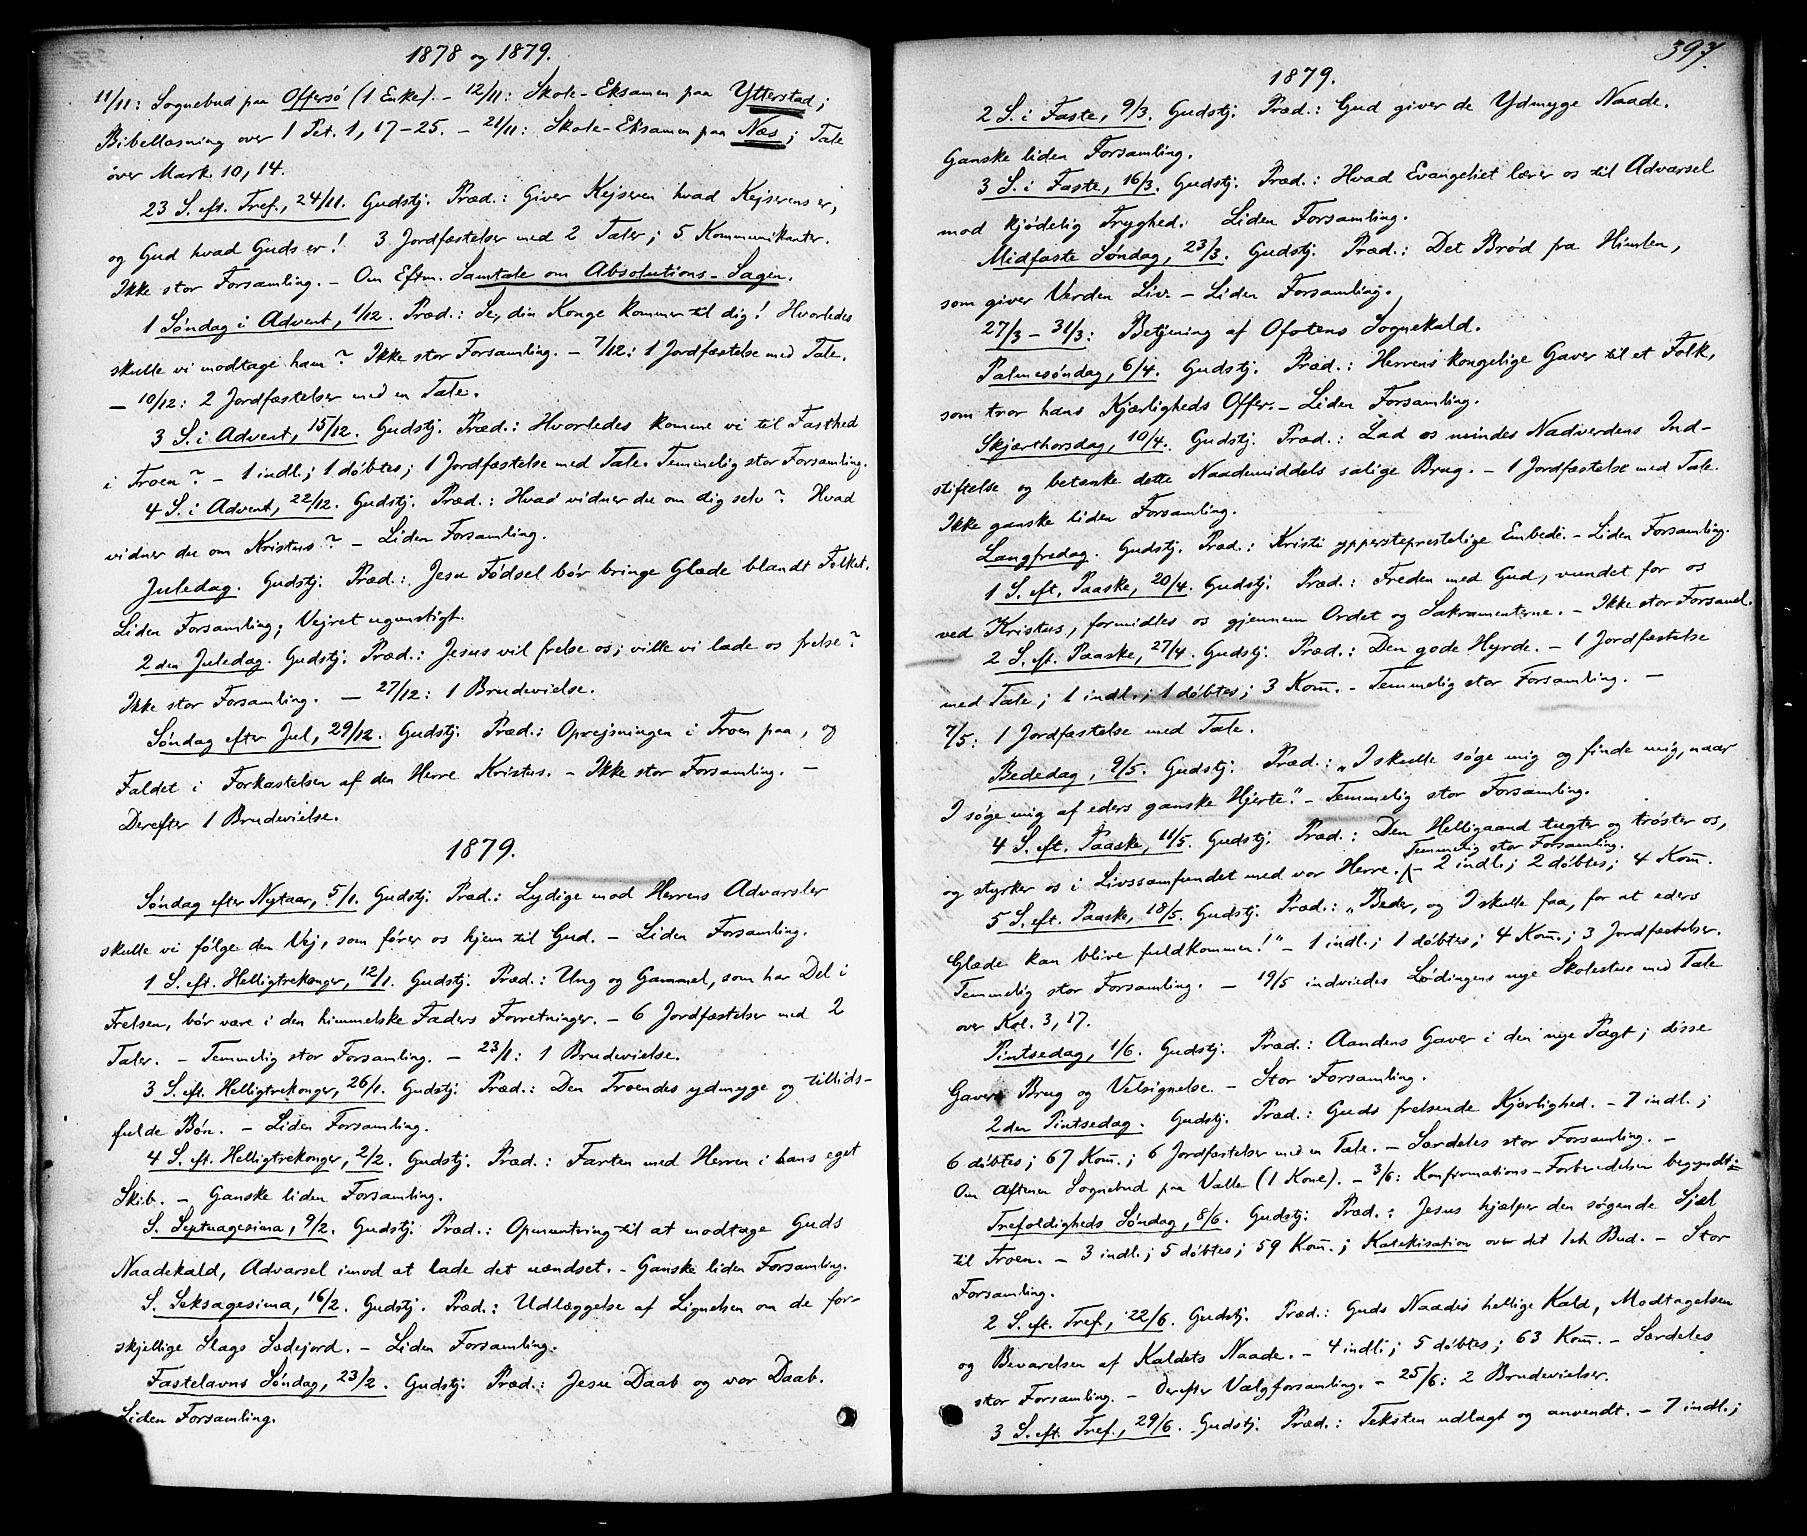 1878 og 1879.
11/11: Sognebud paa Offersö (1 Enke). - 12/11: Skole-Eksamen paa Ytterstad;
Bibellæsning over 1 Pet. 1, 17-25. - 21/11: Skole-Eksamen paa Næs; Tale
over Mark. 10, 14.
23 S. eft. Tref., 24/11. Gudstj. Præd.: Giver Kejseren hvad Kejserens er,
og Gud hvad Guds er! 3 Jordfæstelser med 2 Taler; 5 Kommunikanter.
Ikke stor Forsamling. - Om Eftm. Samtale om Absolutions-Sagen.
1 Søndag i Advent, 1/12. Præd.: Se, din Konge kommer til dig! Hvorledes
skulle vi modtage ham? Ikke stor Forsamling. - 7/12: 1 Jordfæstelse med Tale.
- 10/12: 2 Jordfæstelser med en Tale.
3 S. i Advent, 15/12. Gudstj. Præd.: Hvorledes komme vi til Fasthed
i Troen? - 1 indl.; 1 døbtes; 1 Jordfæstelse med Tale. Temmelig stor Forsamling.
4 S. i Advent, 22/12. Gudstj. Præd.: Hvad vidner du om dig selv? Hvad
vidner du om Kristus? - Liden Forsamling.
Juledag. Gudstj. Præd.: Jesu Fødsel bør bringe Glæde blandt Folket.
Liden Forsamling; Vejret ugunstigt.
2den Juledag. Gudstj. Præd.: Jesus vil frelse os; ville vi lade os frelse?
Ikke stor Forsamling. - 27/12: 1 Brudevielse.
Søndag efter Jul, 29/12. Gudstj. Præd.: Oprejsningen i Troen paa, og
Faldet i Forkastelsen af den Herre Kristus. - Ikke stor Forsamling. -
Derefter 1 Brudevielse.
1879.
Søndag efter Nytaar, 5/1. Gudstj. Præd.: Lydige mod Herrens Advarsler
skulle vi følge den Vej, som fører os hjem til Gud. - Liden Forsamling.
1 S. eft. Helligtrekonger, 12/1. Gudstj. Præd.: Ung og Gammel, som har Del i
Frelsen, bør være i den himmelske Faders Forretninger. - 6 Jordfæstelser med 2
Taler. - Temmelig stor Forsamling. - 23/1: 1 Brudevielse.
3 S. eft. Helligtrekonger, 26/1. Gudstj. Præd.: Den Troendes ydmyge og tillids-
fulde Bøn. - Liden Forsamling.
4 S. eft. Helligtrekonger, 2/2. Gudstj. Præd.: Farten med Herren i hans eget
Skib. - Ganske liden Forsamling.
S. Septuagesima, 9/2. Gudstj. Præd.: Opmuntring til at modtage Guds
Naadekald, Advarsel imod at lade det uændset. - Ganske liden Forsamling.
S. Seksagesima, 16/2. Gudstj. Præd.: Udlæggelse af Lignelsen om de for-
skjellige Slags Sædejord. - Liden Forsamling.
Fastelavns Søndag, 23/2. Gudstj. Præd.: Jesu Daab og vor Daab.
Liden Forsamling.
397.
1879.
2 S. i Faste, 9/3. Gudstj. Præd.: Gud giver de Ydmyge Naade.
Ganske liden Forsamling.
3 S. i Faste, 16/3. Gudstj. Præd.: Hvad Evangeliet lærer os til Advarsel
mod kjødelig Tryghed. Liden Forsamling.
Midfaste Søndag, 23/3. Gudstj. Præd.: Det Brød fra Himlen,
som giver Verden Liv. - Liden Forsamling.
27/3 - 31/3: Betjening af Ofotens Sognekald.
Palmesøndag, 6/4. Gudstj. Præd.: Herrens kongelige Gaver til et Folk,
som tror hans Kjærligheds Offer. - Liden Forsamling.
Skjærthorsdag, 10/4. Gudstj. Præd.: Lad os mindes Nadverdens Ind-
stiftelse og betænke dette Naademiddels salige Brug. - 1 Jordfæstelse med Tale.
Ikke ganske liden Forsamling.
Langfredag. Gudstj. Præd.: Kristi yppersteprestelige Embede. - Liden Forsamling.
1 S. eft. Paaske, 20/4. Gudstj. Præd.: Freden med Gud, vundet for os
ved Kristus, formidles os gjennem Ordet og Sakramenterne. - Ikke stor Forsaml.
2 S. eft. Paaske, 27/4. Gudstj. Præd.: Den gode Hyrde. - 1 Jordfæstelse
med Tale; 1 indl.; 1 døbtes; 3 Kom̄. - Temmelig stor Forsamling. -
7/5: 1 Jordfæstelse med Tale.
Bededag, 9/5. Gudstj. Præd.: „I skulle søge mig og finde mig, naar
I søge mig af eders ganske Hjerte." - Temmelig stor Forsamling.
4 S. eft. Paaske, 11/5. Gudstj. Præd.: Den Helligaand tugter og trøster os,
Temmelig stor Forsamling.
og styrker os i Livssamfundet med vor Herre. - 2 indl.; 2 døbtes; 4 Kom̄.
5 S. eft. Paaske, 18/5. Gudstj. Præd.: „Beder, og I skulle faa, for at eders
Glæde kan blive fuldkommen!" - 1 indl.; 1 døbtes; 4 Kom̄.; 3 Jordfæstelser.
Temmelig stor Forsamling. - 19/5 indviedes Lødingens nye Skolestue med Tale
over Kol. 3, 17.
Pintsedag, 1/6. Gudstj. Præd.: Aandens Gaver i den nye Pagt; disse
Gavers Brug og Velsignelse. - Stor Forsamling.
2den Pintsedag. Gudstj. Præd.: Guds frelsende Kjærlighed. - 7 indl.;
6 døbtes; 67 Kom̄.; 6 Jordfæstelser med en Tale. - Særdeles stor Forsamling. -
Om Aftenen Sognebud paa Valle (1 Kone). - 3/6: Konfirmations-Forberedelsen begyndt.
Trefoldigheds Søndag, 8/6. Gudstj. Præd.: Jesus hjælper den søgende Sjæl
til Troen. - 3 indl.; 5 døbtes; 59 Kom̄.; Katekisation over det 1ste Bud. - Stor
Forsamling.
2 S. eft. Tref., 22/6. Gudstj. Præd.: Guds Naades hellige Kald, Modtagelsen
og Bevarelsen af Kaldets Naade. - 4 indl.; 5 døbtes; 63 Kom̄. - Særdeles
stor Forsamling. - Derefter Valgforsamling. - 25/6: 2 Brudevielser.
3 S. eft. Tref., 29/6. Gudstj. Præd.: Teksten udlagt og anvendt. - 7 indl.;